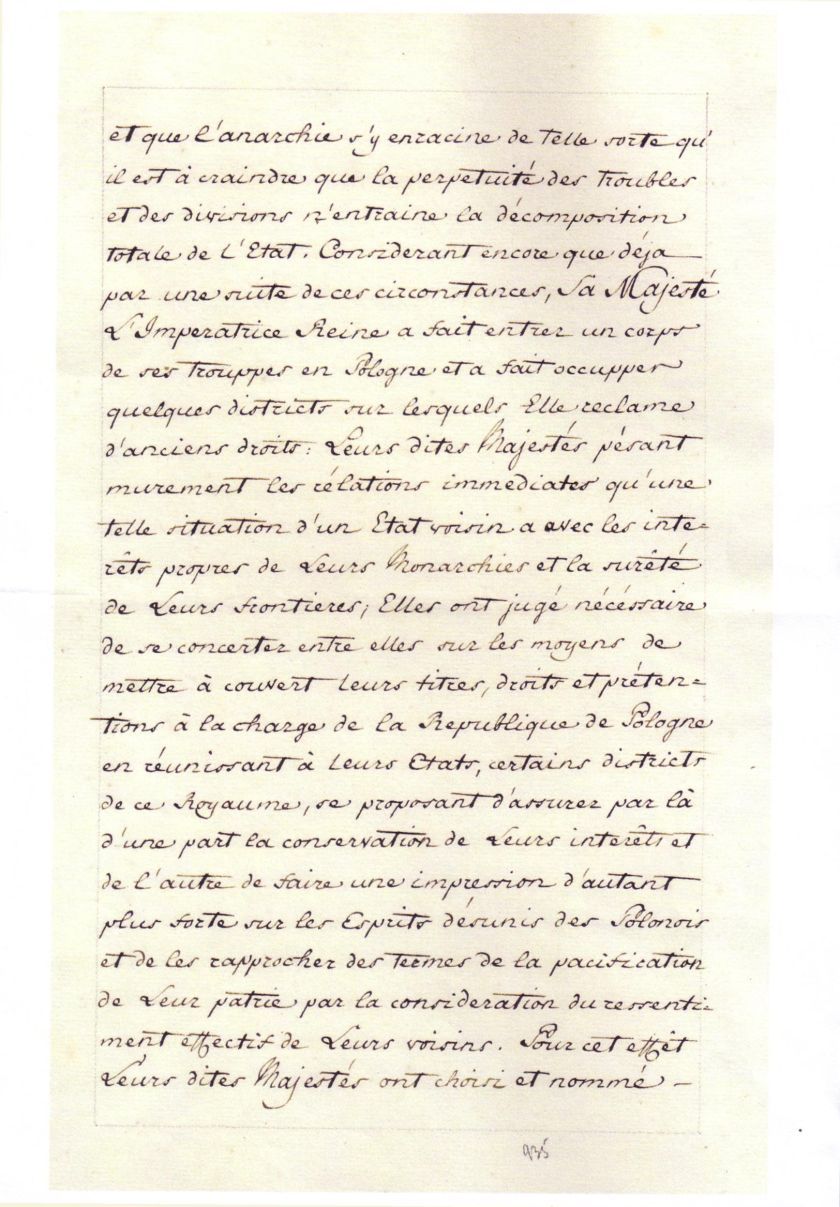 et que l'anarchie s'y enracine de telle sorte qu'
il est à craindre que la perpetuité des troubles
et des divisions n'entraine la décomposition
totale de l'Etat. Considerant encore que déja —
par une suite de ces circonstances, Sa Majesté
L'Imperatrice Reine a fait entrer un corps
de ses trouppes en Pologne et a fait occupper
quelques districts sur lesquels Elle reclame
d'anciens droits: Leurs dites Majestés pésant
murement les rélations immediates qu'une
telle situation d'un Etat voisin a avec les inte=
rêts propres de Leurs Monarchies et la surêté
de Leurs frontieres; Elles ont jugé nécéssaire
de se concerter entre elles sur les moyens de
mettre à couvert leurs titres, droits et préten=
tions à la charge de la Republique de Pologne
en réunissant à leurs Etats, certains districts
de ce Royaume, se proposant d'assurer par là
d'une part la conservation de Leurs interêts et
de l'autre de faire une impression d'autant
plus forte sur les Esprits désunis des Polonois
et de les rapprocher des termes de la pacification
de Leur patrie par la consideration du ressenti=
ment effectif de Leurs voisins. Pour cet effêt
Leurs dites Majestés ont choisi et nommé —